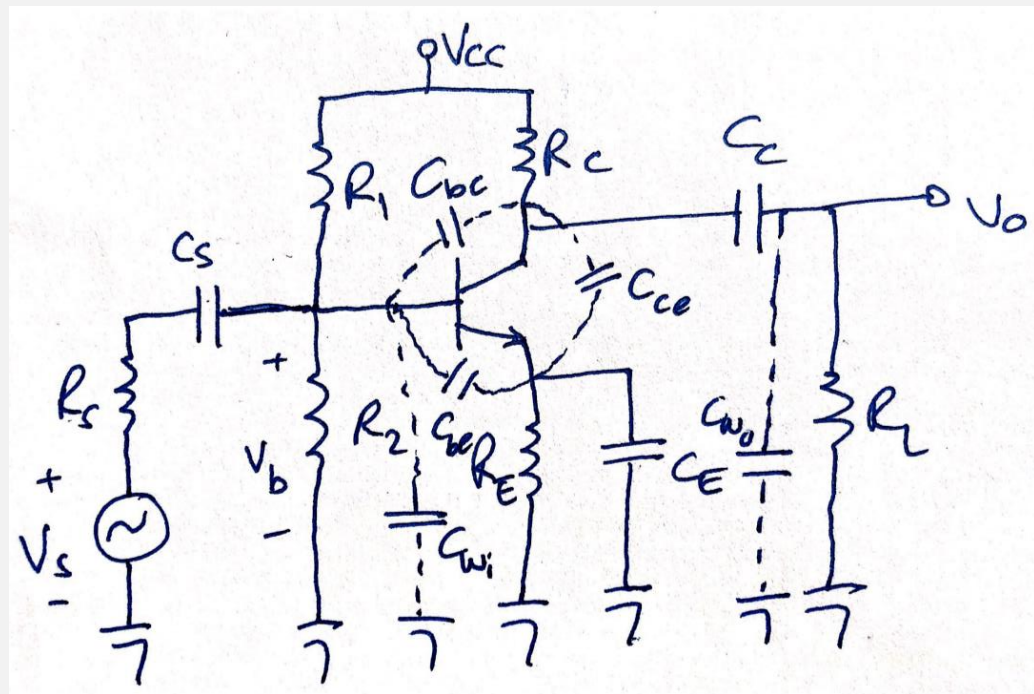 Vcc
R1 Cbc Rc Cc
Vo
Cs
Cce
+
Rs R2 Cbe RE CE Cwo RL
Vb
+
Vs
-
-
Cwi